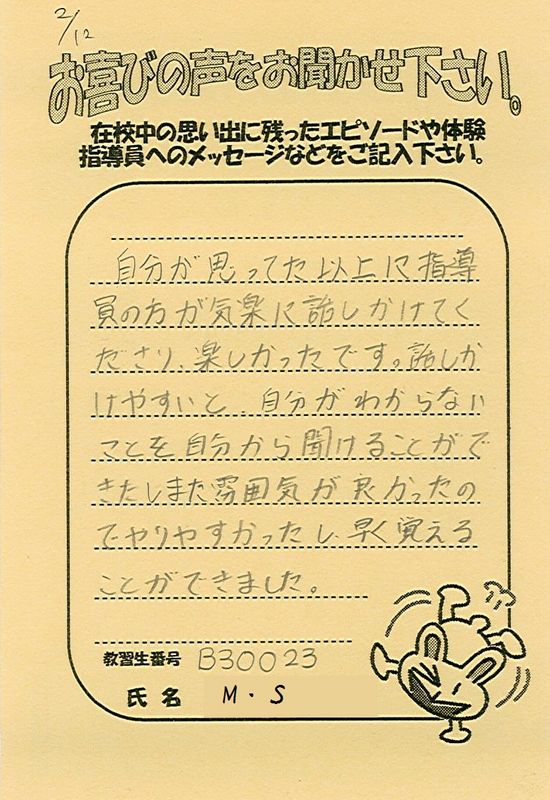 2/12
お喜びの声をお聞かせ下さい。
在校中の思い出に残ったエピソードや体験
指導員へのメッセージなどをご記入下さい。
自分が思ってた以上に指導
員の方が気楽に話しかけてく
ださり、楽しかったです。話しか
けやすいと、自分がわからない
ことを自分から聞けることがで
きたしまた雰囲気が良かったの
でやりやすかったし、早く覚える
ことができました。
教習生番号 B30023
氏名 M・S